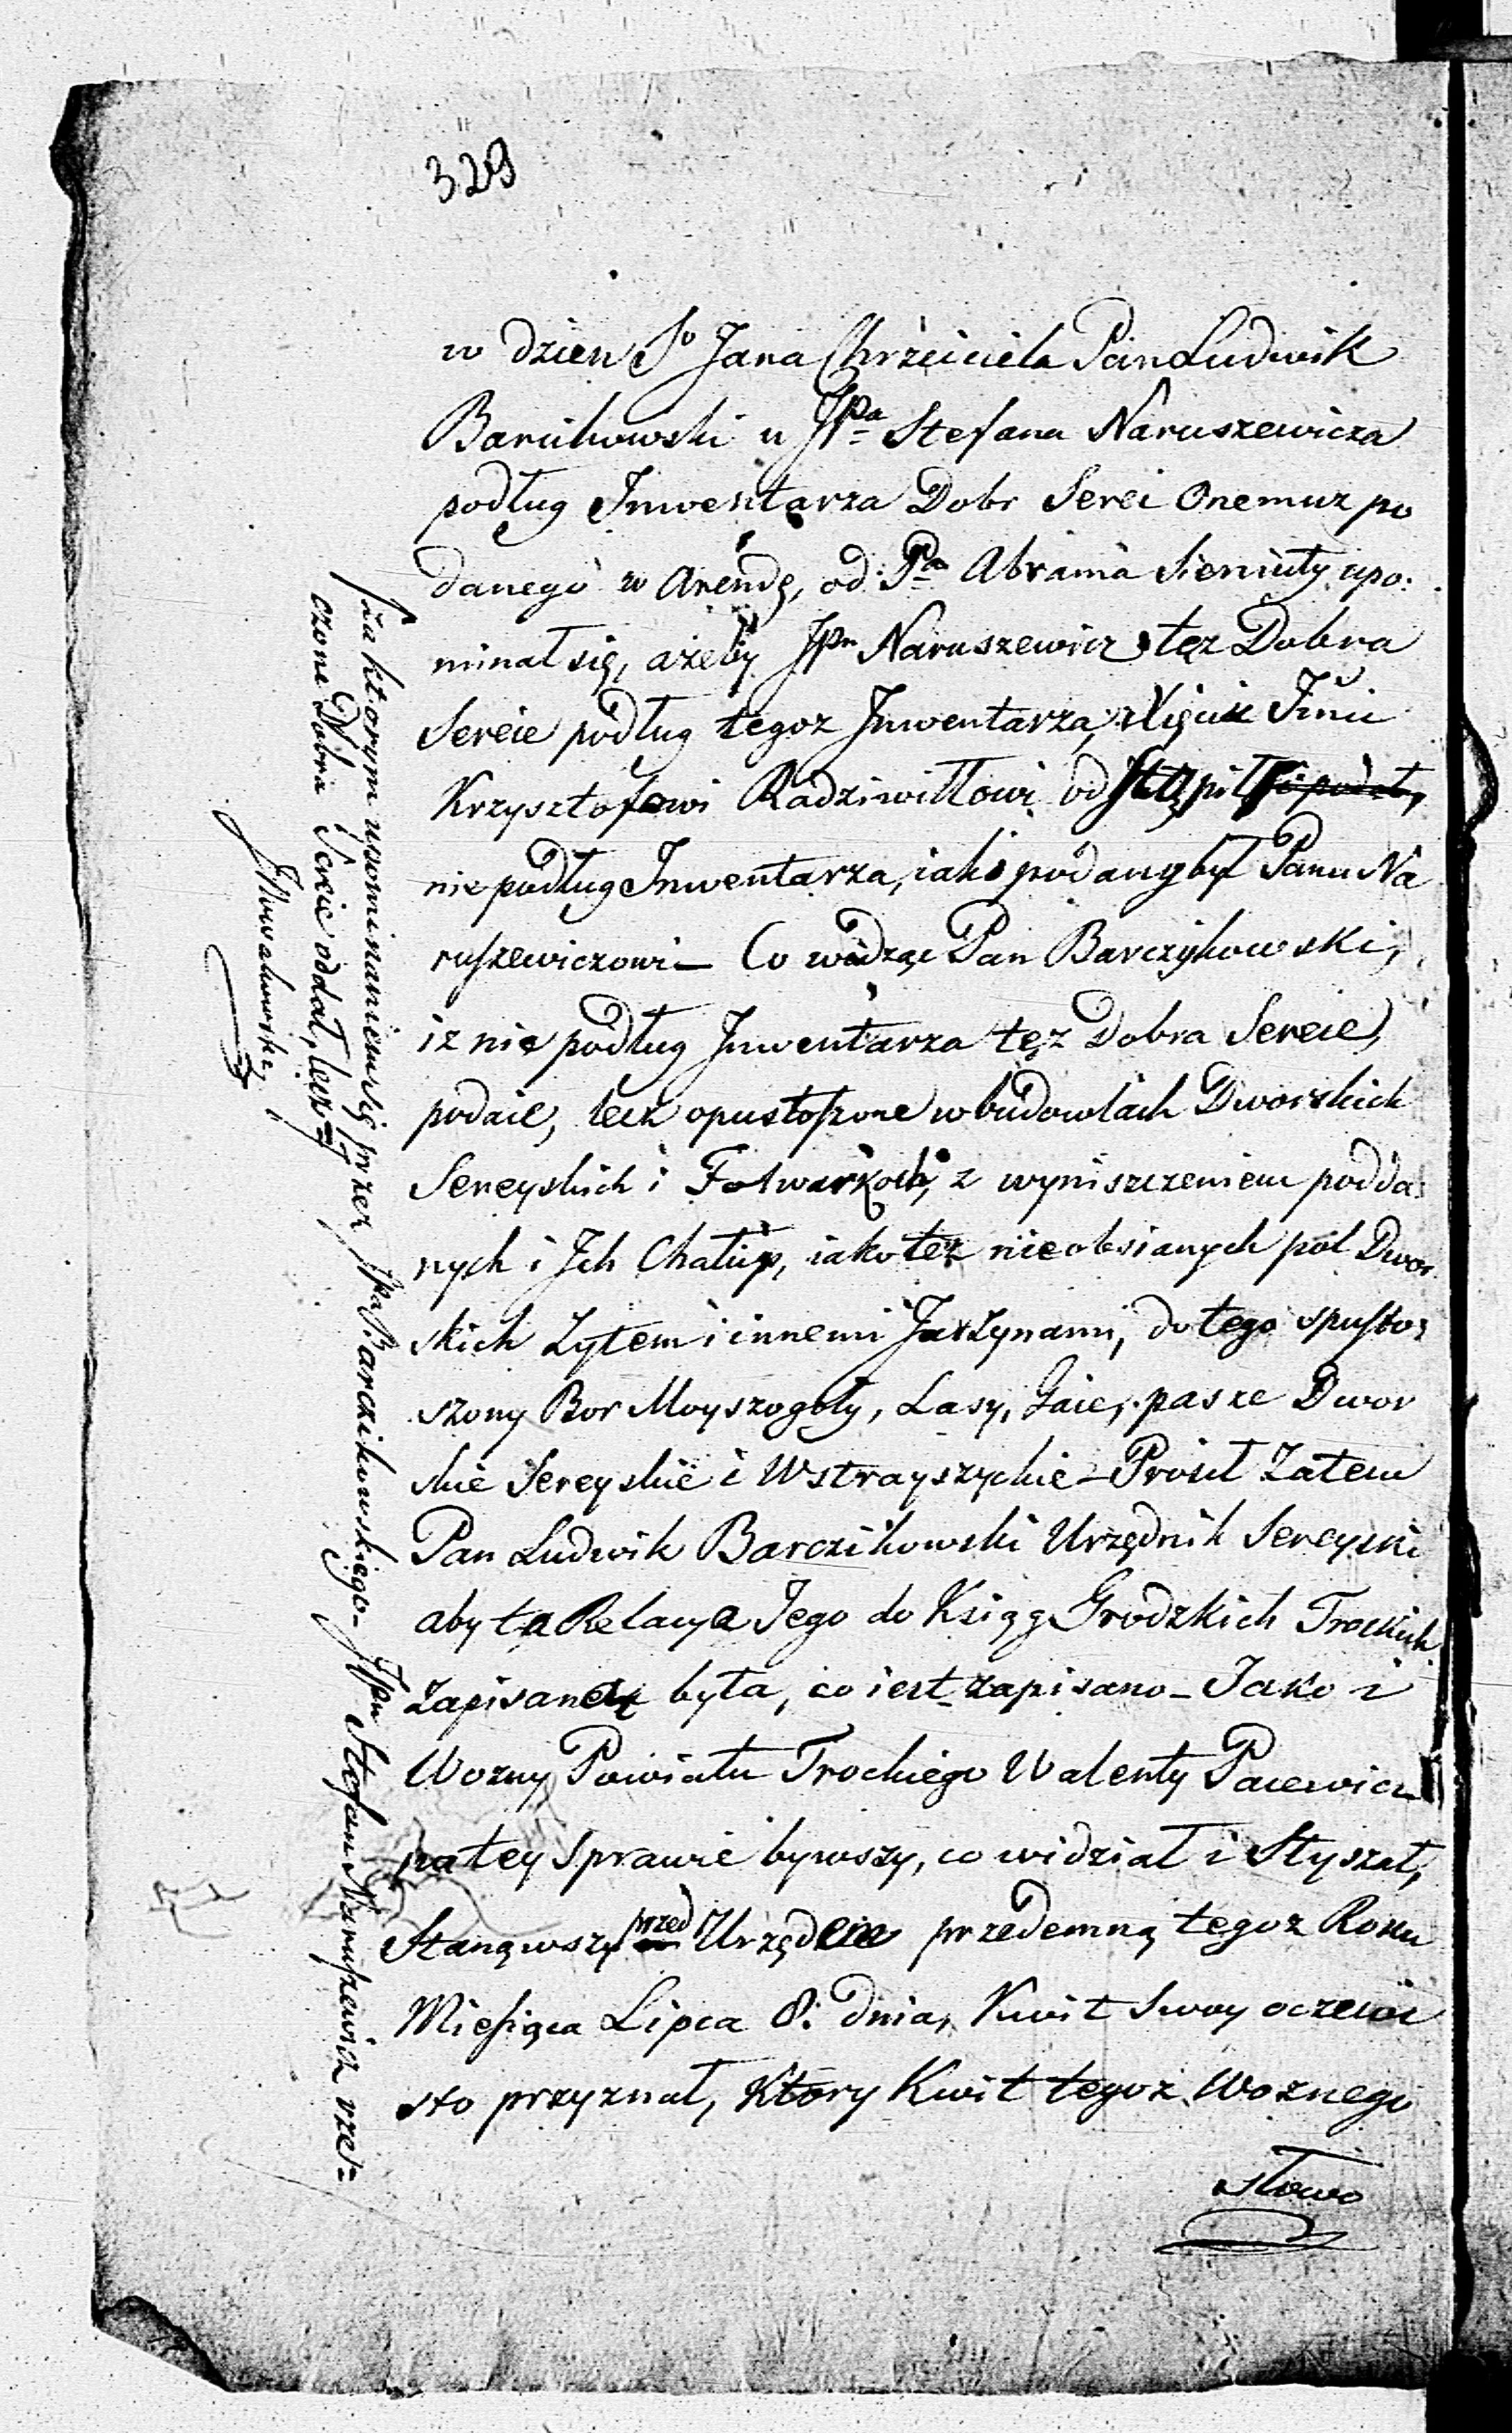 329
w dzien So Jana Chrzciciela Pan Ludwik
Barcikowski u JPa Stefana Naruszewicza
podług Inwentarza Dobr Serei Onemuz po
danego w Arendę, od Pa Abrama Sieniuty upo:
minał się, ażeby JPn Naruszewicz też Dobra
Sereie podług tegoz Inwentarza, Xięciu Jmu
Krzysztofowi Radziwiłłowi odstąpił i podał,
nie podług Inwentarza, iako podany był Panu Na
ruszewiczowi — Co widząc Pan Barczykowski,
iz nie podług Inwentarza też Dobra Sereie,
podaie, lecz opustoszone w budowlach Dworskich
Sereyskich i Folwarkach, z wyniszczeniem podda:
nych i Jch Chałup, iako też nieobsianych pól Dwor
skich Żytem i innemi Jarzynami, do tego spusto:
szony Bor Moyszogoły, Lasy, Gaie, pasze Dwor
skie Sereyskie i Wstrayszyckie — Prosił Zatem
Pan Ludwik Barczikowski Urzędnik Sereyski
aby ta Relacya Jego do Ksiąg Grodzkich Trockich
Zapisana była, co iest zapisano — Jako i
Wozny Powiatu Trockiego Walenty Pacewicz
na tey Sprawie bywszy, co widział i Słyszał,
Stanąwszy przed Urzędem przedemną tegoz Roku
Miesiąca Lipca 8. dnia, Kwit Swoy oczewi
sto przyznał, Który Kwit tegoz Woznego
słowo
Za ktorym upominaniem się przez JPa Barczikowskiego — JPan Stefan Naruszewicz rze:
czone Dobra Sereie oddał, lecz